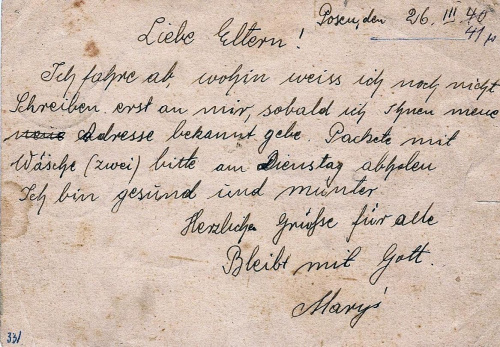 Posen, den 26. III 40
41 r
Liebe Eltern!
Ich fahre ab, wohin weiss ich noch nicht
Schreiben erst an mir, sobald ich Ihnen meine
neue Adresse bekannt gebe. Packete mit
Wäsche (zwei) bitte am Dienstag abholen
Ich bin gesund und munter
Herzliche Grüße für alle
Bleibt mit Gott
Maryś
33/